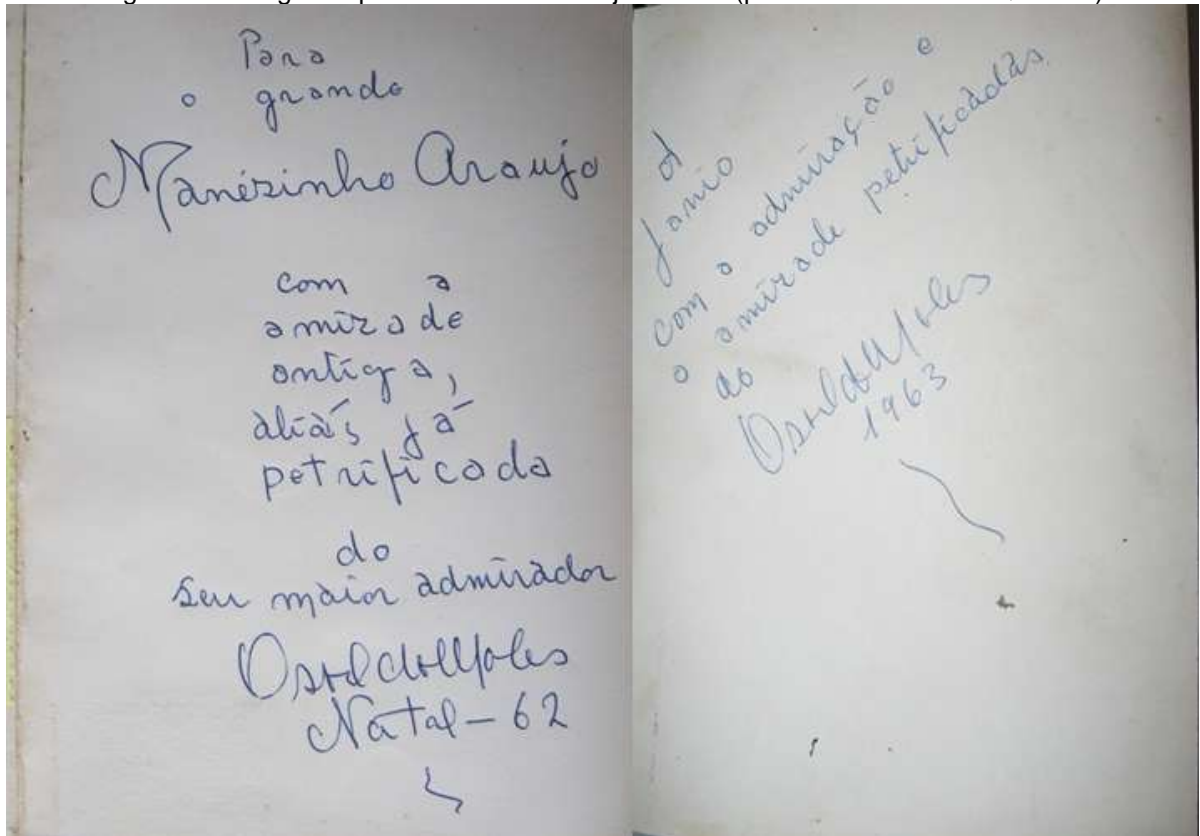 Para
o grande
Manézinho Araujo
com a
amizade
antiga,
aliás já
petrificada
do
seu maior admirador
Osvaldo Moles
Natal - 62
A
Janio
com a admiração e
a amizade petrificadas
do
Osvaldo Moles
1963